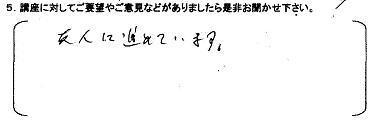 5. 講座に対してご要望やご意見などがありましたら是非お聞かせ下さい。
友人に進めています。